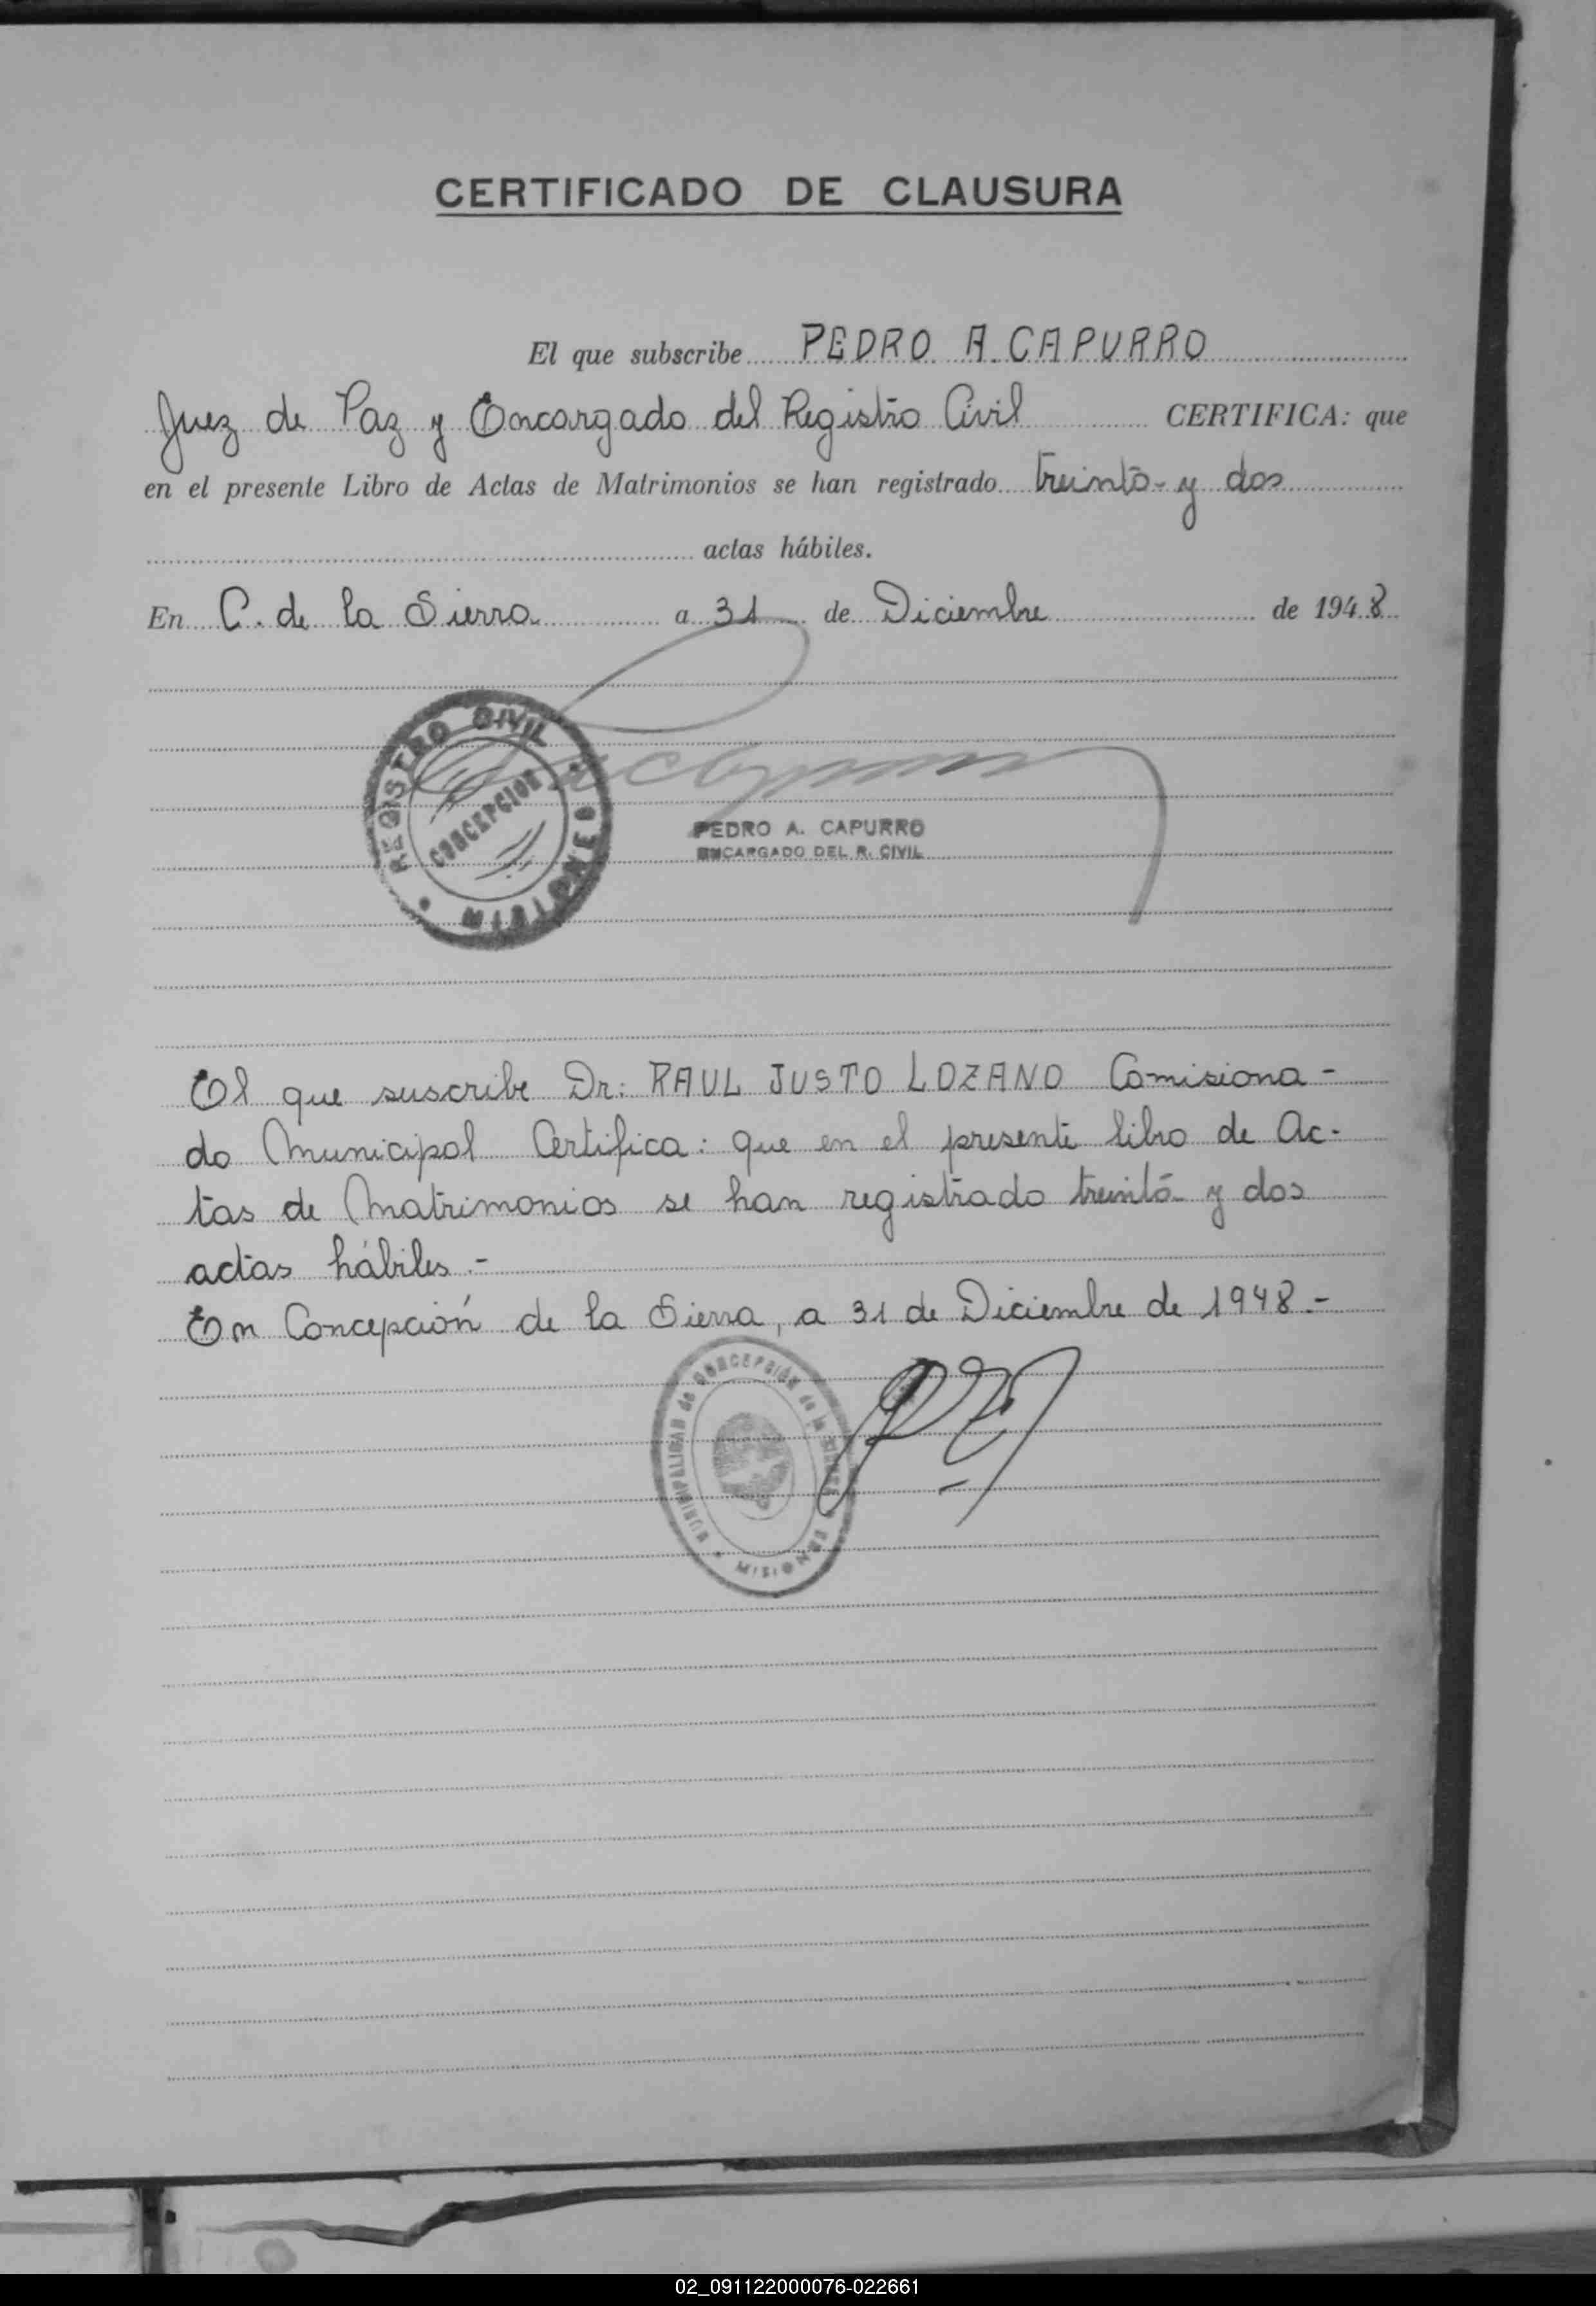 CERTIFICADO DE CLAUSURA
El que subscribe PEDRO A. CAPURRO
Juez de Paz y Encargado del Registro Civil CERTIFICA: que
en el presente Libro de Actas de Matrimonios se han registrado treinta y dos
actas hábiles.
En C. de la Sierra a 31 de Diciembre de 1948
REGISTRO CIVIL
CONCEPCION
MISIONES
PEDRO A. CAPURRO
ENCARGADO DEL R. CIVIL
El que suscribe Dr: RAUL JUSTO LOZANO Comisiona-
do Municipal Certifica: que en el presente libro de Ac-
tas de Matrimonios se han registrado treinta y dos
actas hábiles.-
En Concepción de la Sierra, a 31 de Diciembre de 1948.-
MUNICIPALIDAD de CONCEPCIÓN de la SIERRA
MISIONES
02_091122000076-022661